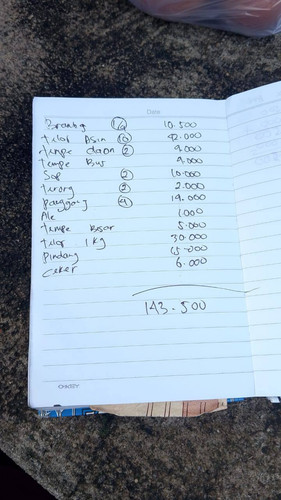 Brambg 1/4 10.500
telor Asin 10 32.000
tempe daon 2 9.000
tempe Bus 9.000
Sop 2 10.000
terong 2 2.000
panggang 4 14.000
Ale 1000
tempe Besar 5.000
telor 1 kg 30.000
Pindang 15.000
Ceker 6.000
143.500